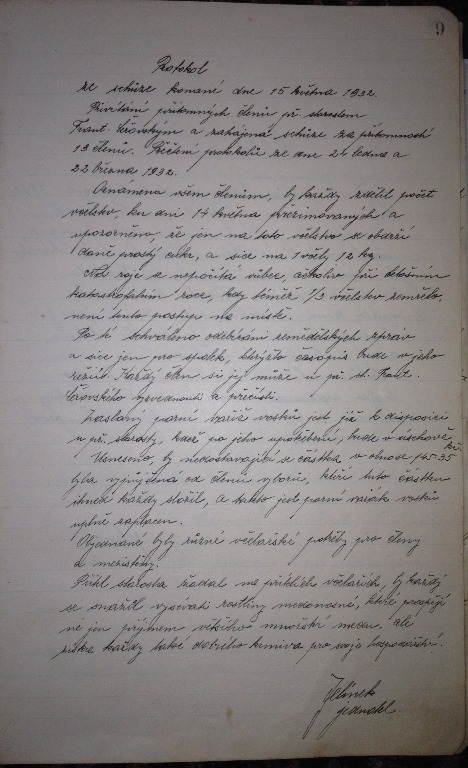 9
Protokol
ze schůze konané dne 15 května 1932.
Přivítání přítomných členů př. starostem
Frant. Čížovským a zahájena schůze za přítomnosti
13 členů. Přečtení protokolů ze dne 24 ledna a
22 března 1932.
Oznámena všem členům, by každý zdělil počet
včelstev, ku dni 14 května přezimovaných a
upozorněno, že jen na toto včelstvo se obdrží
daně prostý cukr, a sice na 1 včely 12 kg.
Na roje se nepočítá vůbec, ačkoliv při letošním
katastrofálním roce, kdy téměř 1/3 včelstev zemřelo,
není tento postup na místě.
Po té schváleno odebírání zemědělských zpráv
a sice jen pro spolek, kterýžto časopis bude v jeho
režii. Každý člen si jej může u př. st. Frant.
Čížovského vyzvednouti a přečísti.
Zaslaný parní vařič vosků jest již k disposici
u př. starosty, kterž po jeho upotřebení, bude v úschově
Usneseno, by nedostavající se částka v obnose
byla vypůjčena od členů výboru, kteří tuto částku
ihned každý složil, a takto jest parní vařák vosků
úplně zaplacen.
Objednané byly různé včelařské potřeby pro členy
a mezistěny.
Přítel starosta žádal na přátelích včelařích, by každý
se snažil vysévati rostliny medonosné, které prospějí
ne jen příjmem většího množství medu, ale
získá každý také dobrého krmiva pro svoje hospodářství.
Jelínek
jednatel